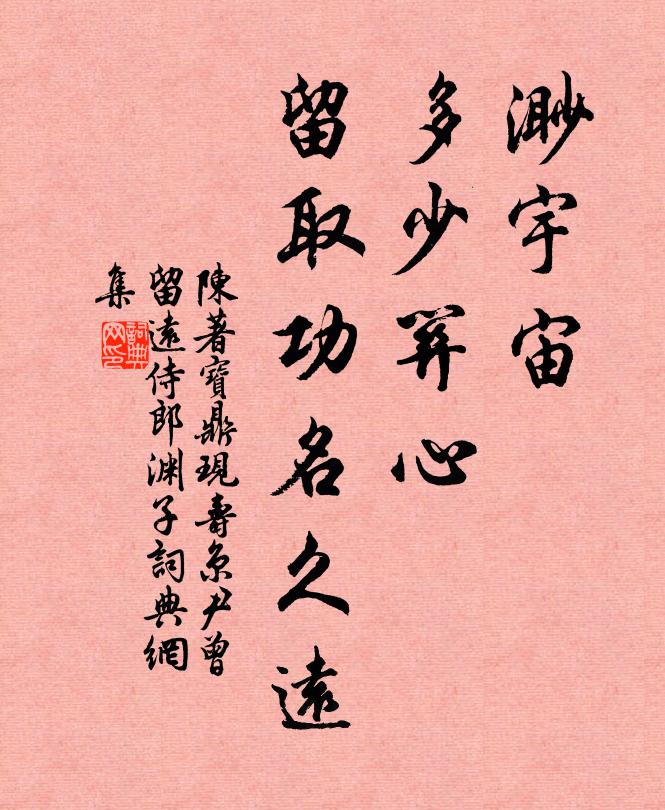 渺宇宙
多少關心
留取功名久遠
陳著寶鼎現壽京尹曾
留遠侍郎淵子詞典網
集
詞典
网印